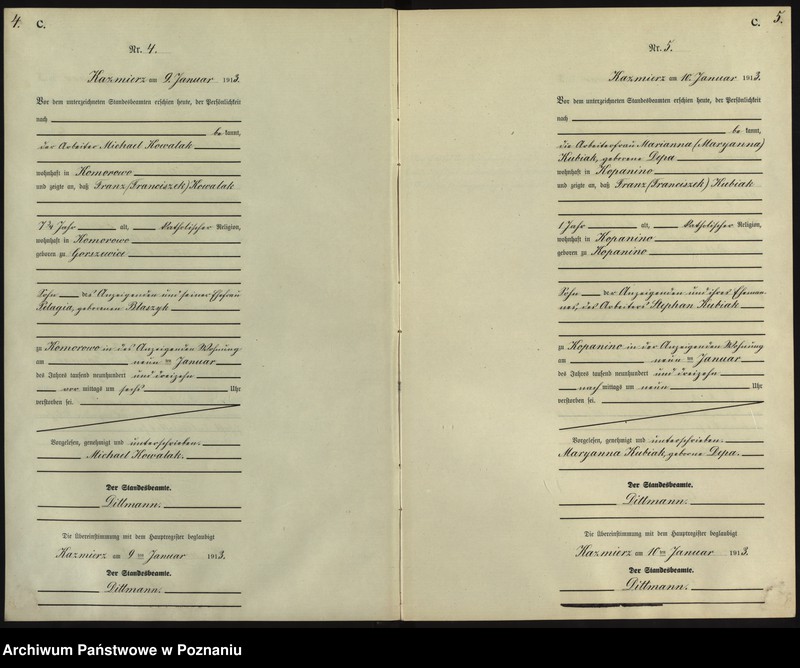 4. C.
Nr. 4.
Kazmierz am 9. Januar 1913.
Vor dem unterzeichneten Standesbeamten erschien heute, der Persönlichkeit
nach
be kannt,
der Arbeiter Michael Kowalak
wohnhaft in Komorowo
und zeigte an, daß Franz (Franciszek) Kowalak
7¾ Jahr alt, katholischer Religion,
wohnhaft in Komorowo
geboren zu Gorszewice
Sohn des Anzeigenden und seiner Ehefrau
Pelagia, geborenen Blaszyk
zu Komorowo in des Anzeigenden Wohnung
am neunten Januar
des Jahres tausend neunhundert und dreizehn
vor mittags um sechs Uhr
verstorben sei.
Vorgelesen, genehmigt und unterschrieben.
Michael Kowalak.
Der Standesbeamte.
Dittmann.
Die Übereinstimmung mit dem Hauptregister beglaubigt
Kazmierz am 9 ten Januar 1913.
Der Standesbeamte.
Dittmann.
C. 5.
Nr. 5.
Kazmierz am 10. Januar 1913.
Vor dem unterzeichneten Standesbeamten erschien heute, der Persönlichkeit
nach
be kannt,
die Arbeiterfrau Marianna (Maryanna)
Kubiak, geborene Depa
wohnhaft in Kopanino
und zeigte an, daß Franz (Franciszek) Kubiak
1 Jahr alt, katholischer Religion,
wohnhaft in Kopanino
geboren zu Kopanino
Sohn der Anzeigenden und ihres Eheman-
nes, des Arbeiters Stephan Kubiak
zu Kopanino in der Anzeigenden Wohnung
am neunten Januar
des Jahres tausend neunhundert und dreizehn
nach mittags um neun Uhr
verstorben sei.
Vorgelesen, genehmigt und unterschrieben.
Maryanna Kubiak, geborne Depa.
Der Standesbeamte.
Dittmann.
Die Übereinstimmung mit dem Hauptregister beglaubigt
Kazmierz am 10 ten Januar 1913.
Der Standesbeamte.
Dittmann.
Archiwum Państwowe w Poznaniu